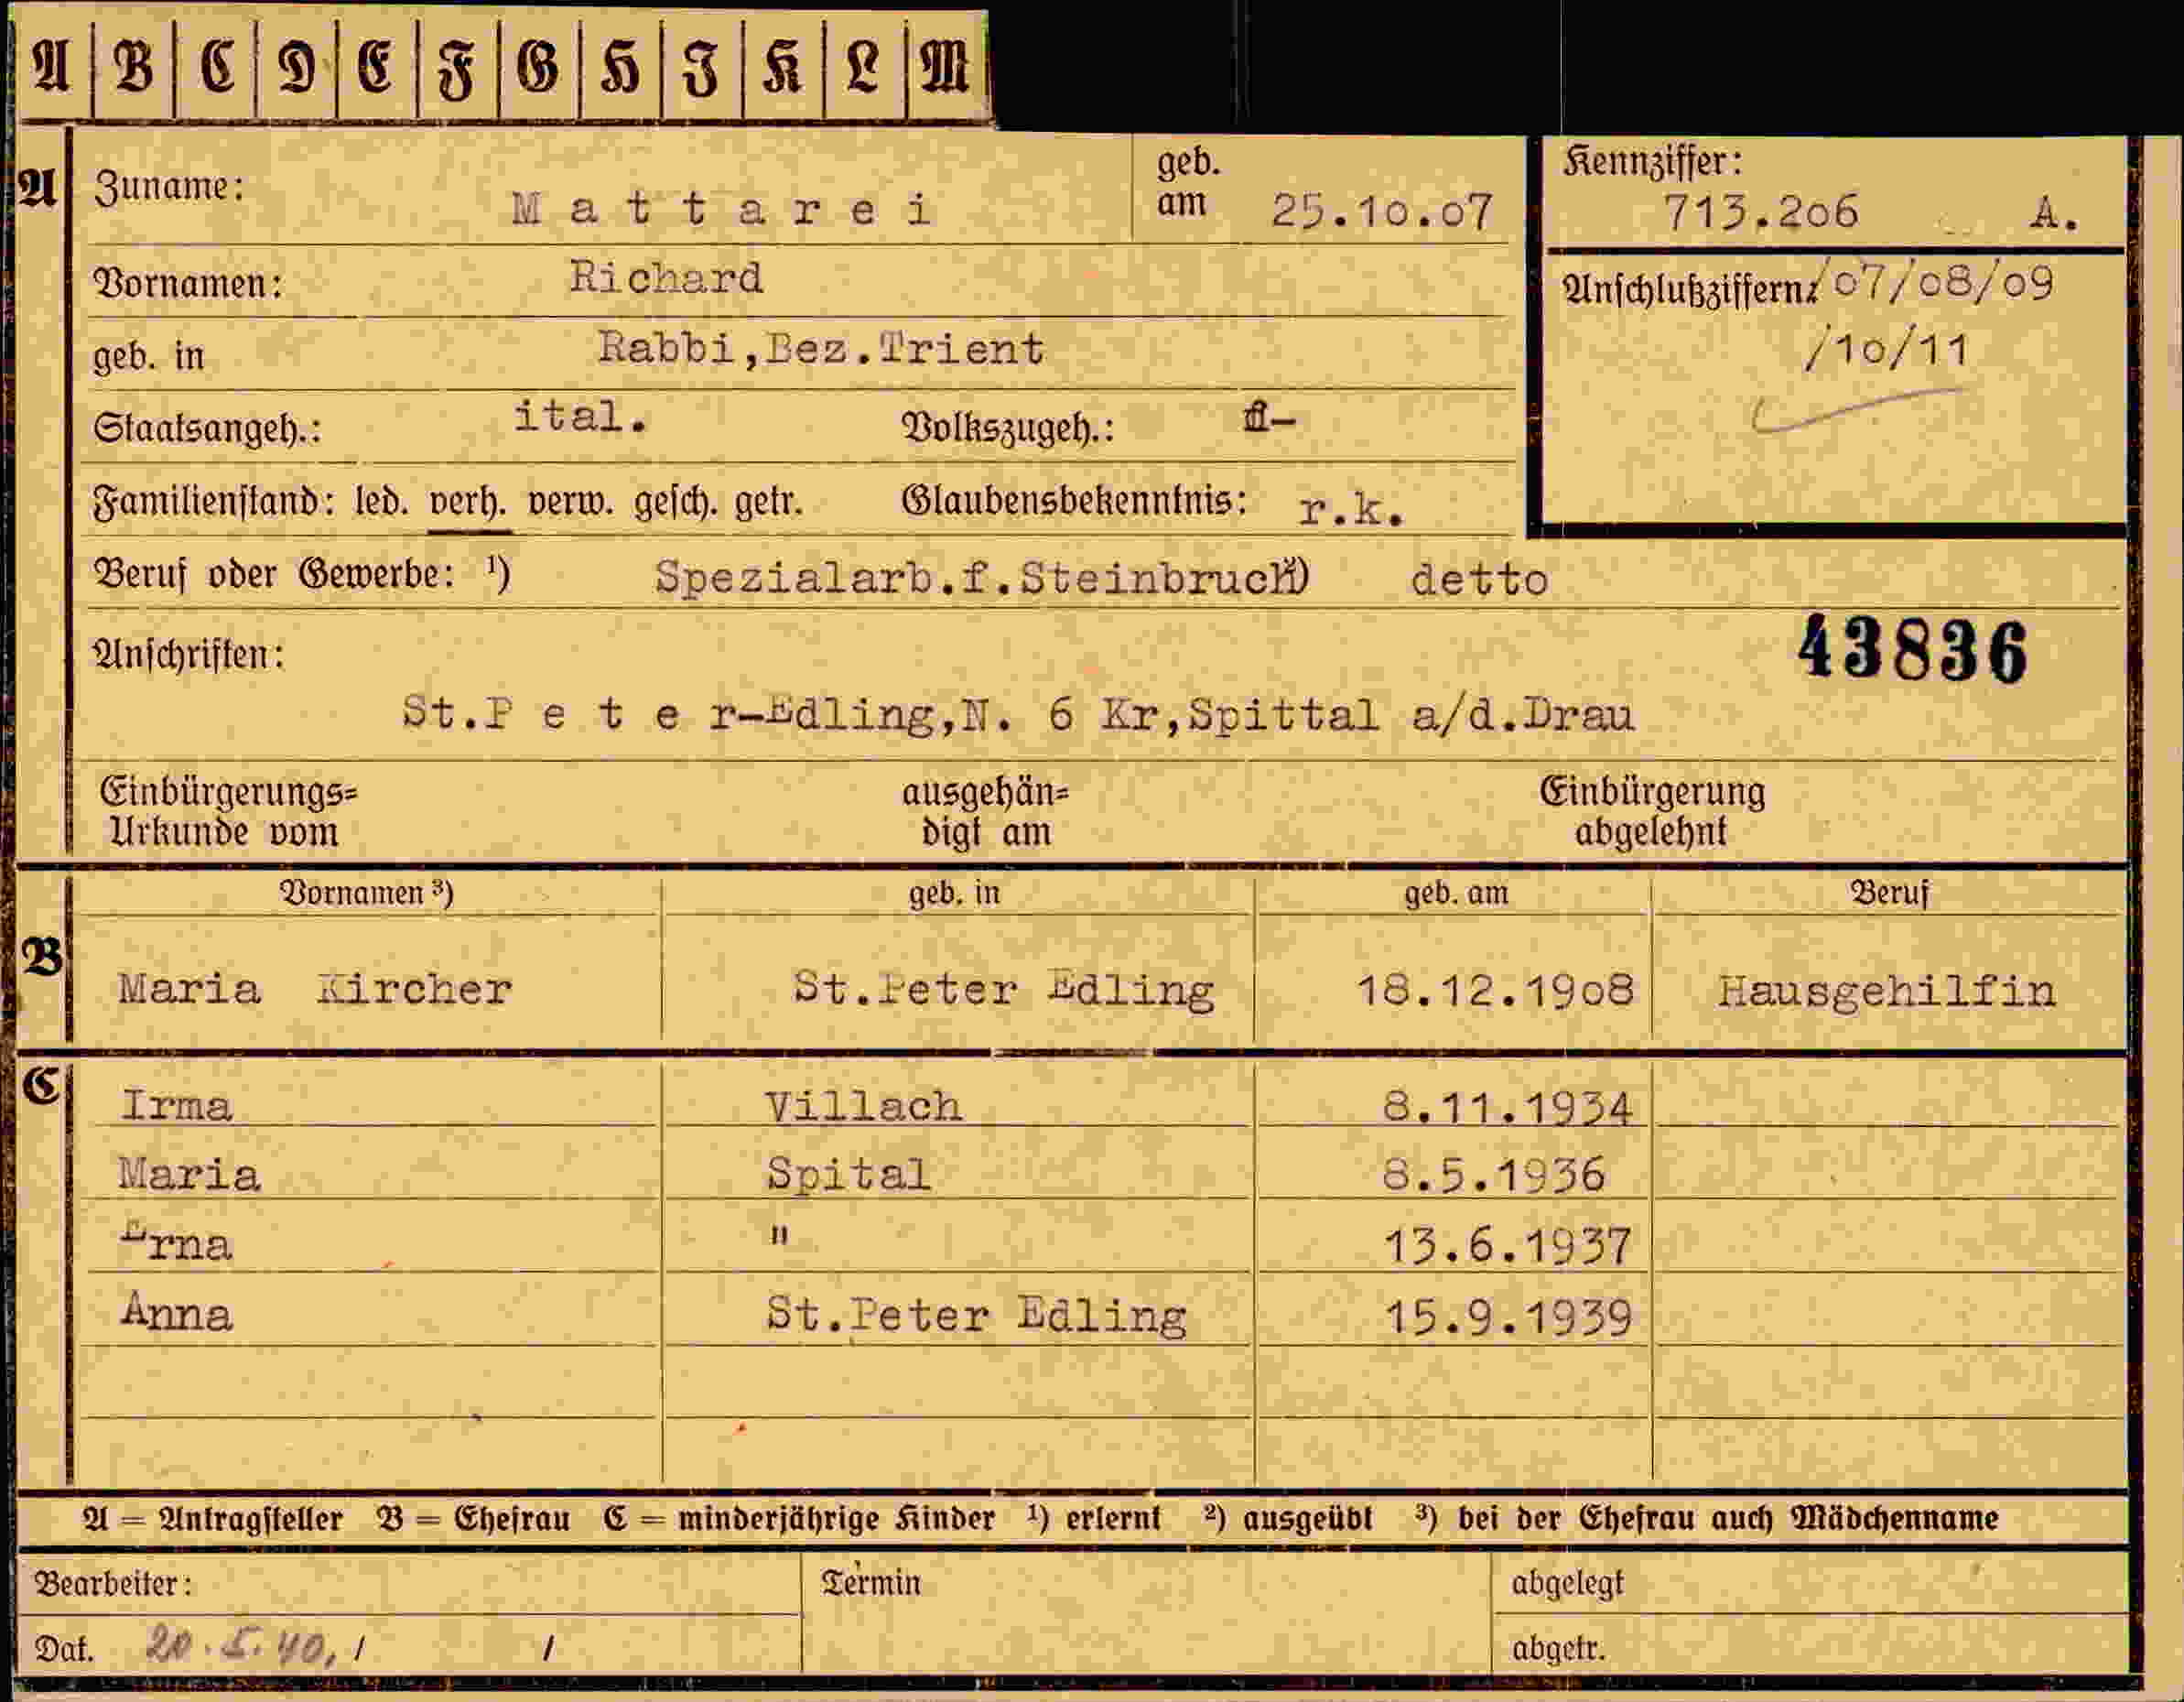 A B C D E F G H I K L M
A Zuname: Mattarei geb. am 25.10.07 Kennziffer: 713.206 A.
Vornamen: Richard Anschlußziffern: /07/08/09
geb. in Rabbi,Bez.Trient /10/11
Staatsangeh.: ital. Volkszugeh.:
Familienstand: led. verh. verw. gesch. getr. Glaubensbekenntnis: r.k.
Beruf oder Gewerbe: ¹) Spezialarb.f.Steinbruch ²) detto
Anschriften: 43836
St.Peter-Edling,N. 6 Kr,Spittal a/d.Drau
Einbürgerungs= ausgehän= Einbürgerung
Urkunde vom digt am abgelehnt
Vornamen ³) geb. in geb. am Beruf
B Maria Kircher St.Peter Edling 18.12.1908 Hausgehilfin
C Irma Villach 8.11.1934
Maria Spital 8.5.1936
Erna " 13.6.1937
Anna St.Peter Edling 15.9.1939
A = Antragsteller B = Ehefrau C = minderjährige Kinder ¹) erlernt ²) ausgeübt ³) bei der Ehefrau auch Mädchenname
Bearbeiter: Termin abgelegt
Dat. 20.5.40, / / abgetr.